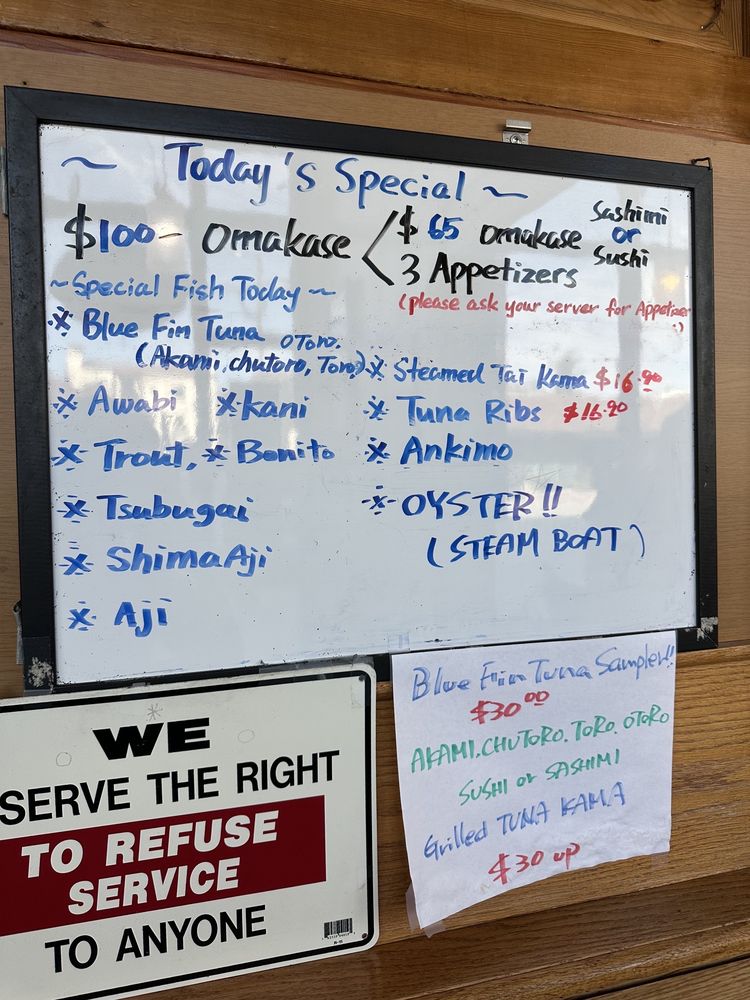 ~ Today's Special ~
$100- Omakase < $65 Omakase Sashimi or Sushi
3 Appetizers
(please ask your server for Appetizer :)
~Special Fish Today~
※ Blue Fin Tuna OToro.
(Akami, chutoro, Toro)
※ Steamed Tai Kama $16.90
※ Awabi ※ kani
※ Tuna Ribs $16.90
※ Trout, ※ Bonito
※ Ankimo
※ Tsubugai
※ OYSTER!!
(STEAM BOAT)
※ ShimaAji
※ Aji
Blue Fin Tuna Sampler!!
$30.00
AKAMI.CHUTORO.TORO.OTORO
SUSHI or SASHIMI
Grilled TUNA KAMA
$30 up
WE
SERVE THE RIGHT
TO REFUSE
SERVICE
TO ANYONE